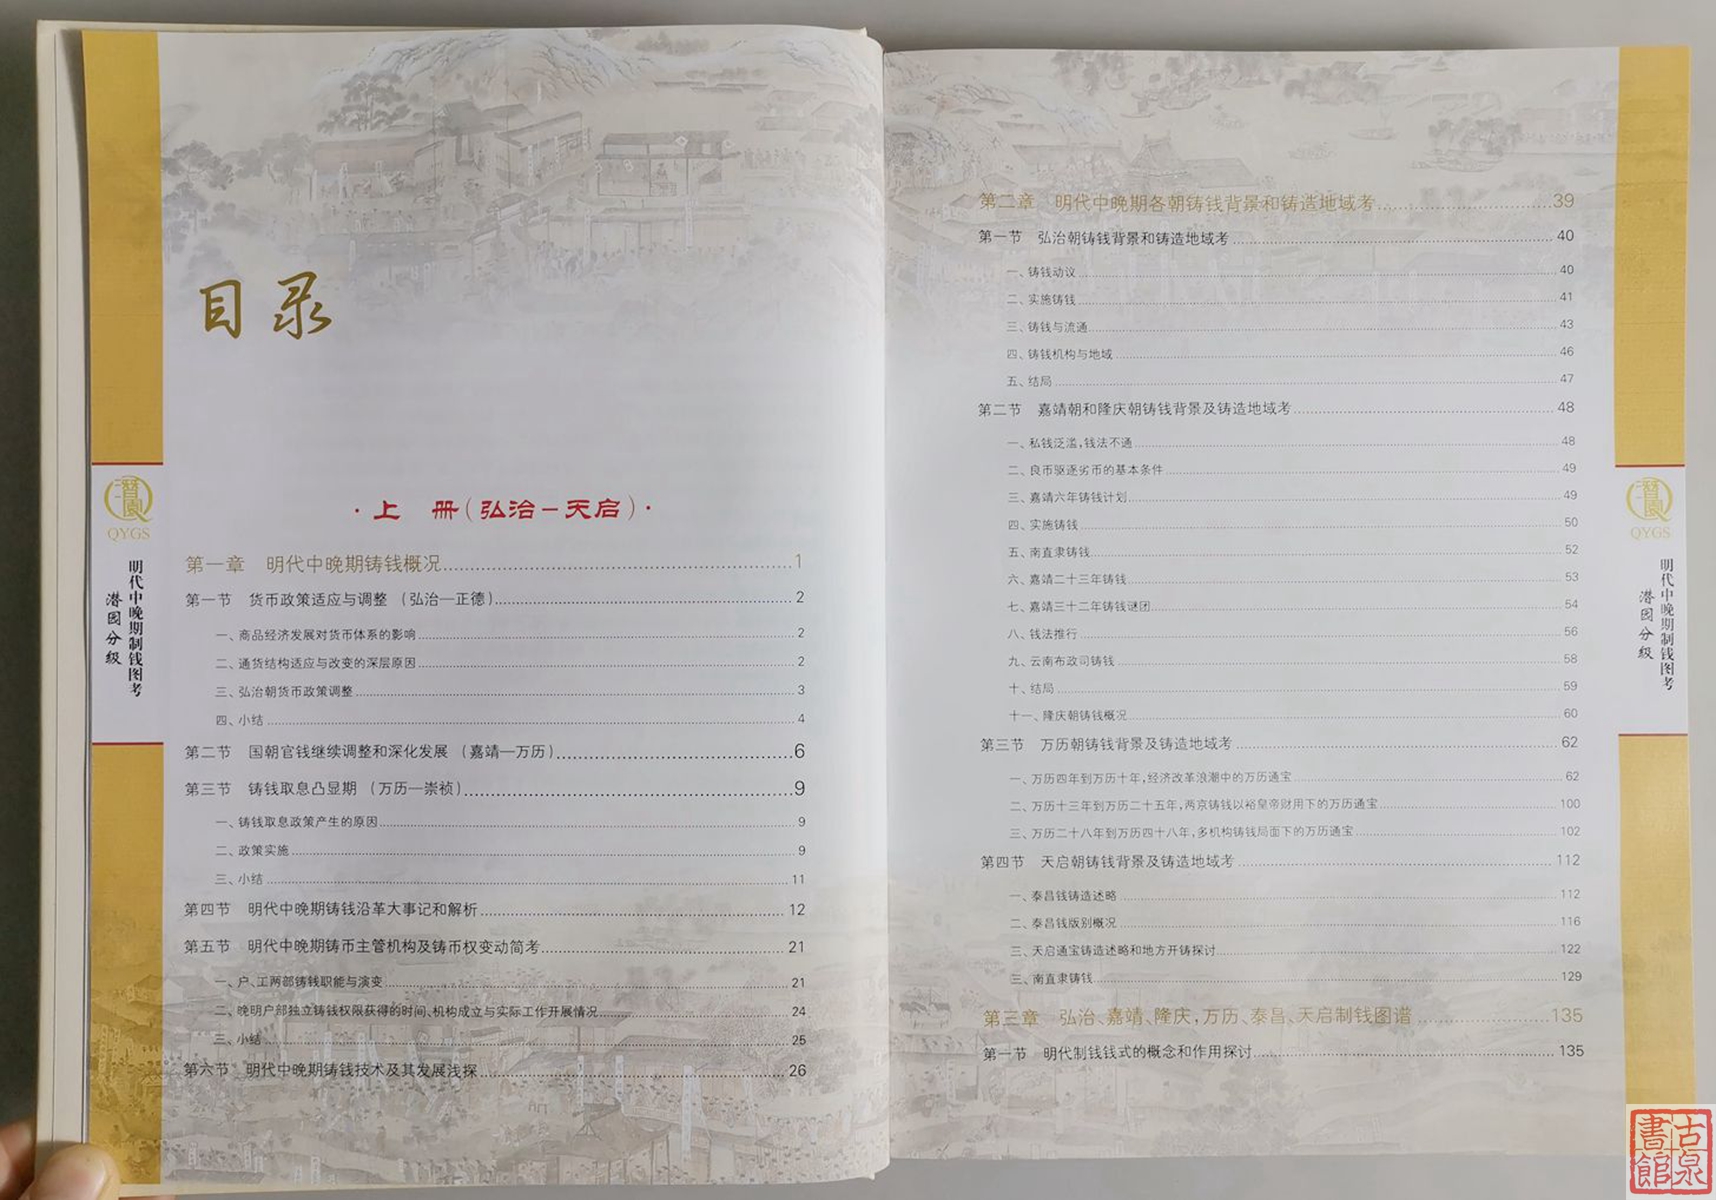 目录
·上 册(弘治－天启)·
第一章 明代中晚期铸钱概况 1
第一节 货币政策适应与调整 （弘治—正德） 2
一、商品经济发展对货币体系的影响 2
二、通货结构适应与改变的深层原因 2
三、弘治朝货币政策调整 3
四、小结 4
第二节 国朝官钱继续调整和深化发展 （嘉靖—万历） 6
第三节 铸钱取息凸显期 （万历—崇祯） 9
一、铸钱取息政策产生的原因 9
二、政策实施 9
三、小结 11
第四节 明代中晚期铸钱沿革大事记和解析 12
第五节 明代中晚期铸币主管机构及铸币权变动简考 21
一、户、工两部铸钱职能与演变 21
二、晚明户部独立铸钱权限获得的时间、机构成立与实际工作开展情况 24
三、小结 25
第六节 明代中晚期铸钱技术及其发展浅探 26
潜园
QYGS
明代中晚期制钱图考
潜园分级
第二章 明代中晚期各朝铸钱背景和铸造地域考 39
第一节 弘治朝铸钱背景和铸造地域考 40
一、铸钱动议 40
二、实施铸钱 41
三、铸钱与流通 43
四、铸钱机构与地域 46
五、结局 47
第二节 嘉靖朝和隆庆朝铸钱背景及铸造地域考 48
一、私钱泛滥，钱法不通 48
二、良币驱逐劣币的基本条件 49
三、嘉靖六年铸钱计划 49
四、实施铸钱 50
五、南直隶铸钱 52
六、嘉靖二十三年铸钱 53
七、嘉靖三十二年铸钱谜团 54
八、钱法推行 56
九、云南布政司铸钱 58
十、结局 59
十一、隆庆朝铸钱概况 60
第三节 万历朝铸钱背景及铸造地域考 62
一、万历四年到万历十年，经济改革浪潮中的万历通宝 62
二、万历十三年到万历二十五年，两京铸钱以裕皇帝财用下的万历通宝 100
三、万历二十八年到万历四十八年，多机构铸钱局面下的万历通宝 102
第四节 天启朝铸钱背景及铸造地域考 112
一、泰昌钱铸造述略 112
二、泰昌钱版别概况 116
三、天启通宝铸造述略和地方开铸探讨 122
三、南直隶铸钱 129
第三章 弘治、嘉靖、隆庆，万历、泰昌、天启制钱图谱 135
第一节 明代制钱钱式的概念和作用探讨 135
潜园
QYGS
明代中晚期制钱图考
潜园分级
古泉
書館